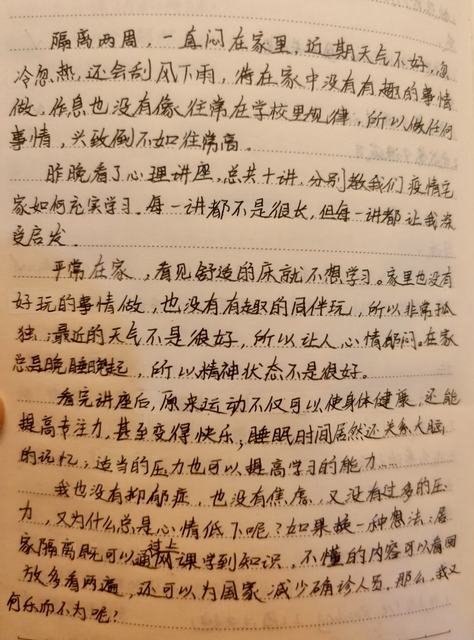 隔离两周，一直闷在家里，近期天气不好，忽
冷忽热，还会刮风下雨，待在家中没有有趣的事情
做，作息也没有像往常在学校里规律，所以做任何
事情，兴致倒不如往常高。
昨晚看了心理讲座，总共十讲，分别教我们疫情宅
家如何充实学习。每一讲都不是很长，但每一讲都让我深
受启发。
平常在家，看见舒适的床就不想学习。家里也没有
好玩的事情做，也没有有趣的同伴玩，所以非常孤
独；最近的天气不是很好，所以让人心情郁闷。在家
总是晚睡晚起，所以精神状态不是很好。
看完讲座后，原来运动不仅可以使身体健康，还能
提高专注力，甚至变得快乐；睡眠时间居然还关系大脑
的记忆；适当的压力也可以提高学习的能力……
我也没有抑郁症，也没有焦虑，又没有过多的压
力，又为什么总是心情低下呢？如果换一种想法：居
家隔离既可以通过上网课学到知识，不懂的内容可以看回
放多看两遍，还可以为国家减少确诊人员。那么，我又
何乐而不为呢？